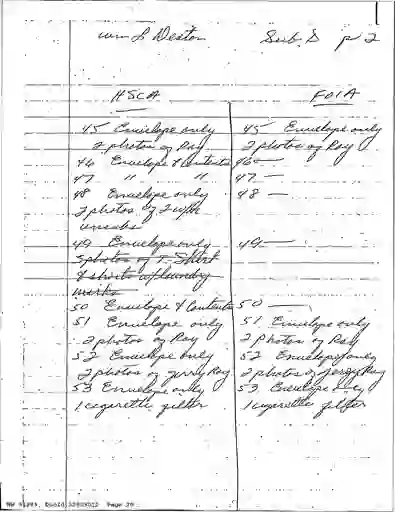 Sub. D p 2
HSCA FOIA
45 Envelope only 45 Envelope only
2 photos of Ray 2 photos of Ray
46 Envelope & Contents 46 —
47 " " 47 —
48 Envelope only 48 —
2 photos of
49 Envelope only 49 —
3 photos of T. Shirt
& shorts w/laundry
marks
50 Envelope & Contents 50 —
51 Envelope only 51 Envelope only
2 photos of Ray 2 Photos of Ray
52 Envelope only 52 Envelope only
2 photos of Jerry Ray 2 photos of Jerry Ray
53 Envelope only 53 Envelope only
1 cigarette filter 1 cigarette filter
Page 20